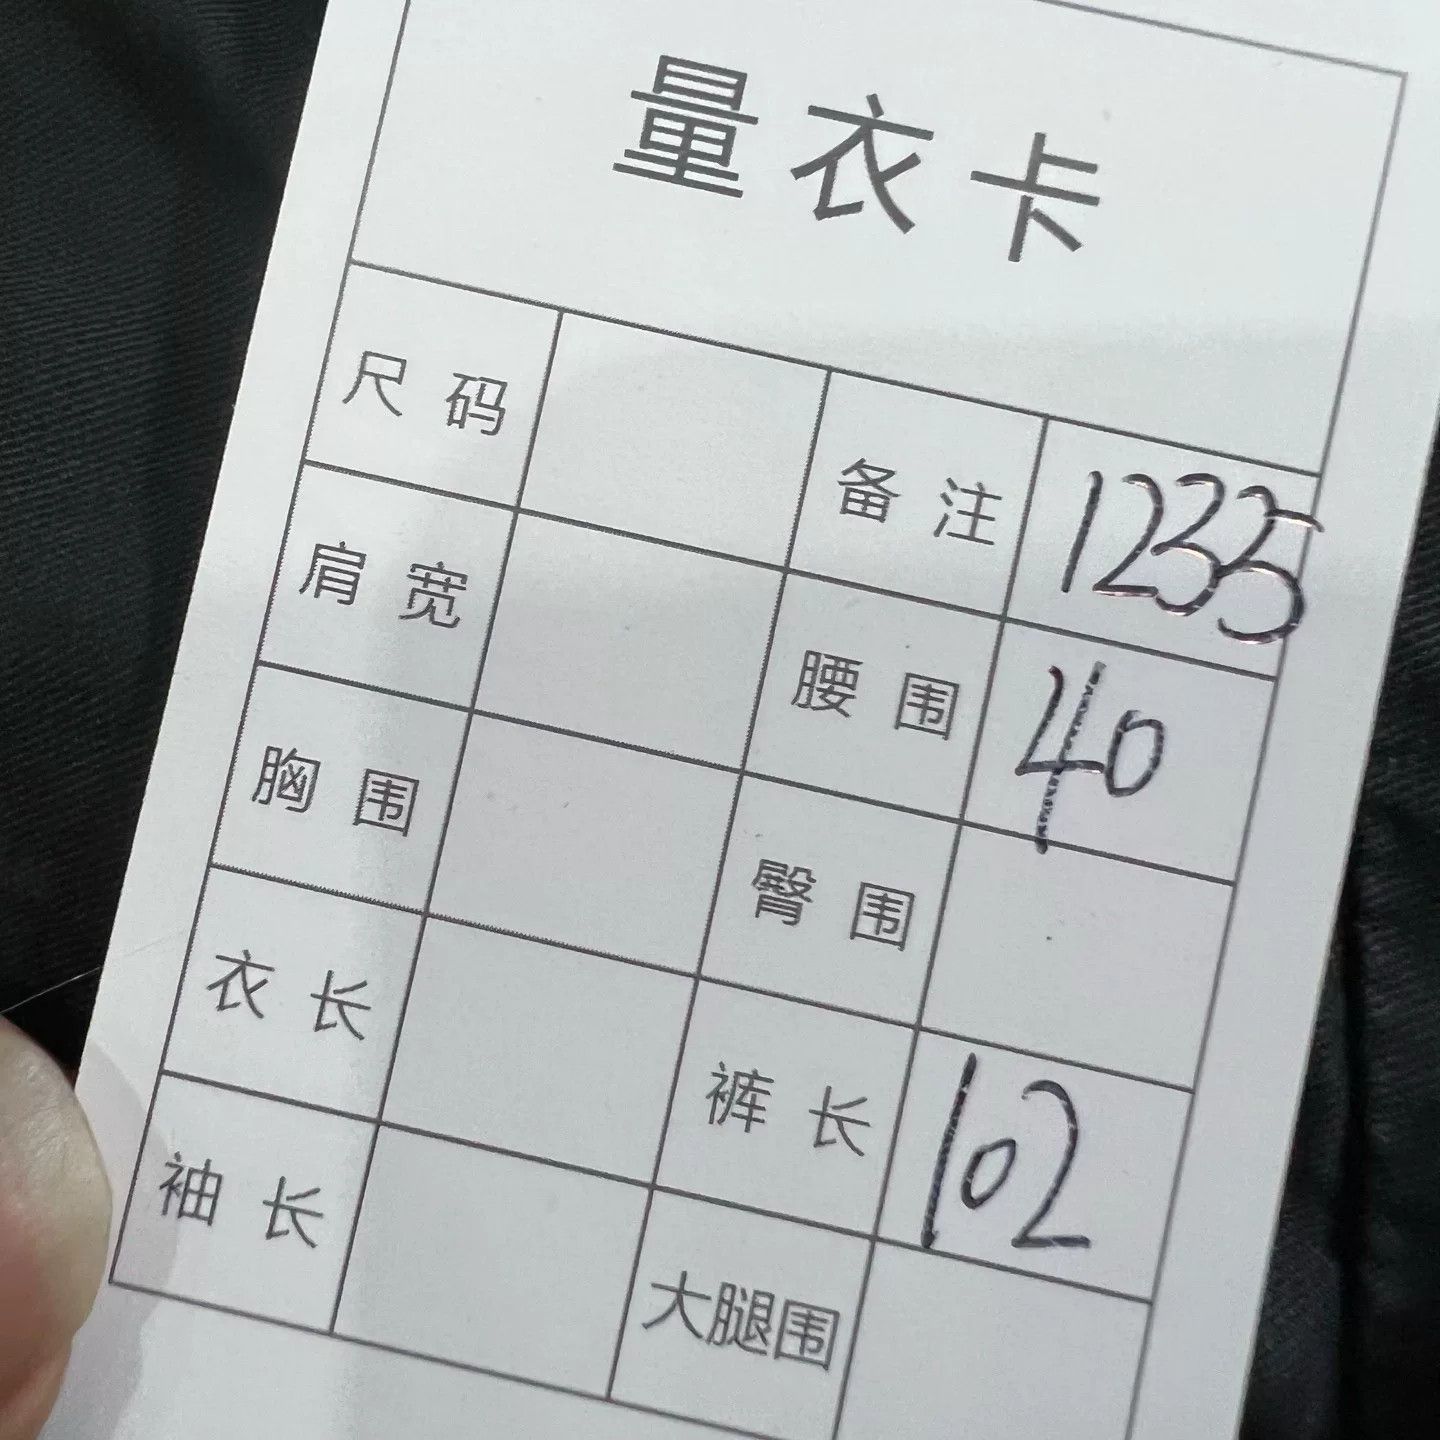 量衣卡
尺码 备注 1235
肩宽 腰围 40
胸围 臀围
衣长 裤长 102
袖长 大腿围